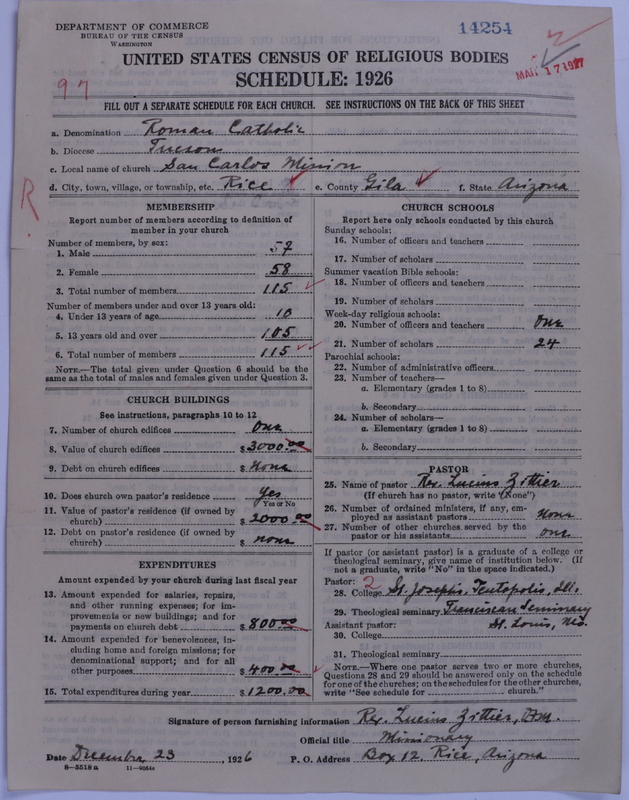 DEPARTMENT OF COMMERCE
BUREAU OF THE CENSUS
WASHINGTON
14254
2
MAR 17 1927
UNITED STATES CENSUS OF RELIGIOUS BODIES
SCHEDULE: 1926
97
FILL OUT A SEPARATE SCHEDULE FOR EACH CHURCH. SEE INSTRUCTIONS ON THE BACK OF THIS SHEET
a. Denomination Roman Catholic
b. Diocese Tucson
c. Local name of church San Carlos Mission
d. City, town, village, or township, etc. Rice e. County Gila f. State Arizona
R
MEMBERSHIP
Report number of members according to definition of
member in your church
Number of members, by sex:
1. Male 57
2. Female 58
3. Total number of members 115
Number of members under and over 13 years old:
4. Under 13 years of age 10
5. 13 years old and over 105
6. Total number of members 115
NOTE.—The total given under Question 6 should be
same as the total of males and females given under Question 3.
CHURCH BUILDINGS
See instructions, paragraphs 10 to 12
7. Number of church edifices One
8. Value of church edifices $3000.00
9. Debt on church edifices $None
10. Does church own pastor's residence Yes
Yes or No
11. Value of pastor's residence (if owned by
church) $2000.00
12. Debt on pastor's residence (if owned by
church) $none
EXPENDITURES
Amount expended by your church during last fiscal year
13. Amount expended for salaries, repairs,
and other running expenses; for im-
provements or new buildings; and for
payments on church debt $800.00
14. Amount expended for benevolences, in-
cluding home and foreign missions; for
denominational support; and for all
other purposes $400.00
15. Total expenditures during year $1200.00
CHURCH SCHOOLS
Report here only schools conducted by this church
Sunday schools:
16. Number of officers and teachers
17. Number of scholars
Summer vacation Bible schools:
18. Number of officers and teachers
19. Number of scholars
Week-day religious schools:
20. Number of officers and teachers One
21. Number of scholars 24
Parochial schools:
22. Number of administrative officers
23. Number of teachers—
a. Elementary (grades 1 to 8)
b. Secondary
24. Number of scholars—
a. Elementary (grades 1 to 8)
b. Secondary
PASTOR
25. Name of pastor Rev. Lucius Zittier
(If church has no pastor, write "None")
26. Number of ordained ministers, if any, em-
ployed as assistant pastors None
27. Number of other churches served by the
pastor or his assistants one
If pastor (or assistant pastor) is a graduate of a college or
theological seminary, give name of institution below. (If
not a graduate, write "No" in the space indicated.)
Pastor: 2
28. College St. Josephs, Teutopolis, Ill.
29. Theological seminary Franciscan Seminary
Assistant pastor: St. Louis, Mo.
30. College
31. Theological seminary
NOTE.—Where one pastor serves two or more churches,
Questions 28 and 29 should be answered only on the schedule
for one of the churches; on the schedules for the other churches,
write "See schedule for church."
Signature of person furnishing information Rev. Lucius Zittier, O.F.M.
Official title Missionary
Date December 23, 1926 P. O. Address Box 12, Rice, Arizona
8—5518a 11—9564a